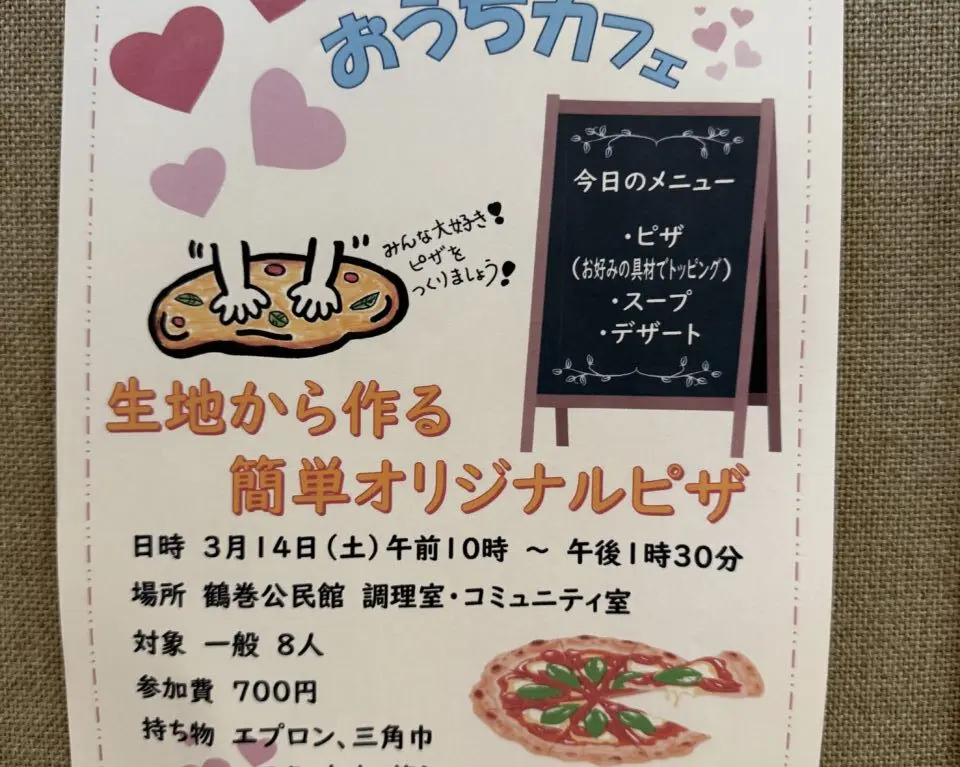 おうちカフェ
今日のメニュー
・ピザ
(お好みの具材でトッピング)
・スープ
・デザート
みんな大好き!
ピザを
つくりましょう!
生地から作る
簡単オリジナルピザ
日時 3月14日(土)午前10時 ～ 午後1時30分
場所 鶴巻公民館 調理室・コミュニティ室
対象 一般 8人
参加費 700円
持ち物 エプロン、三角巾